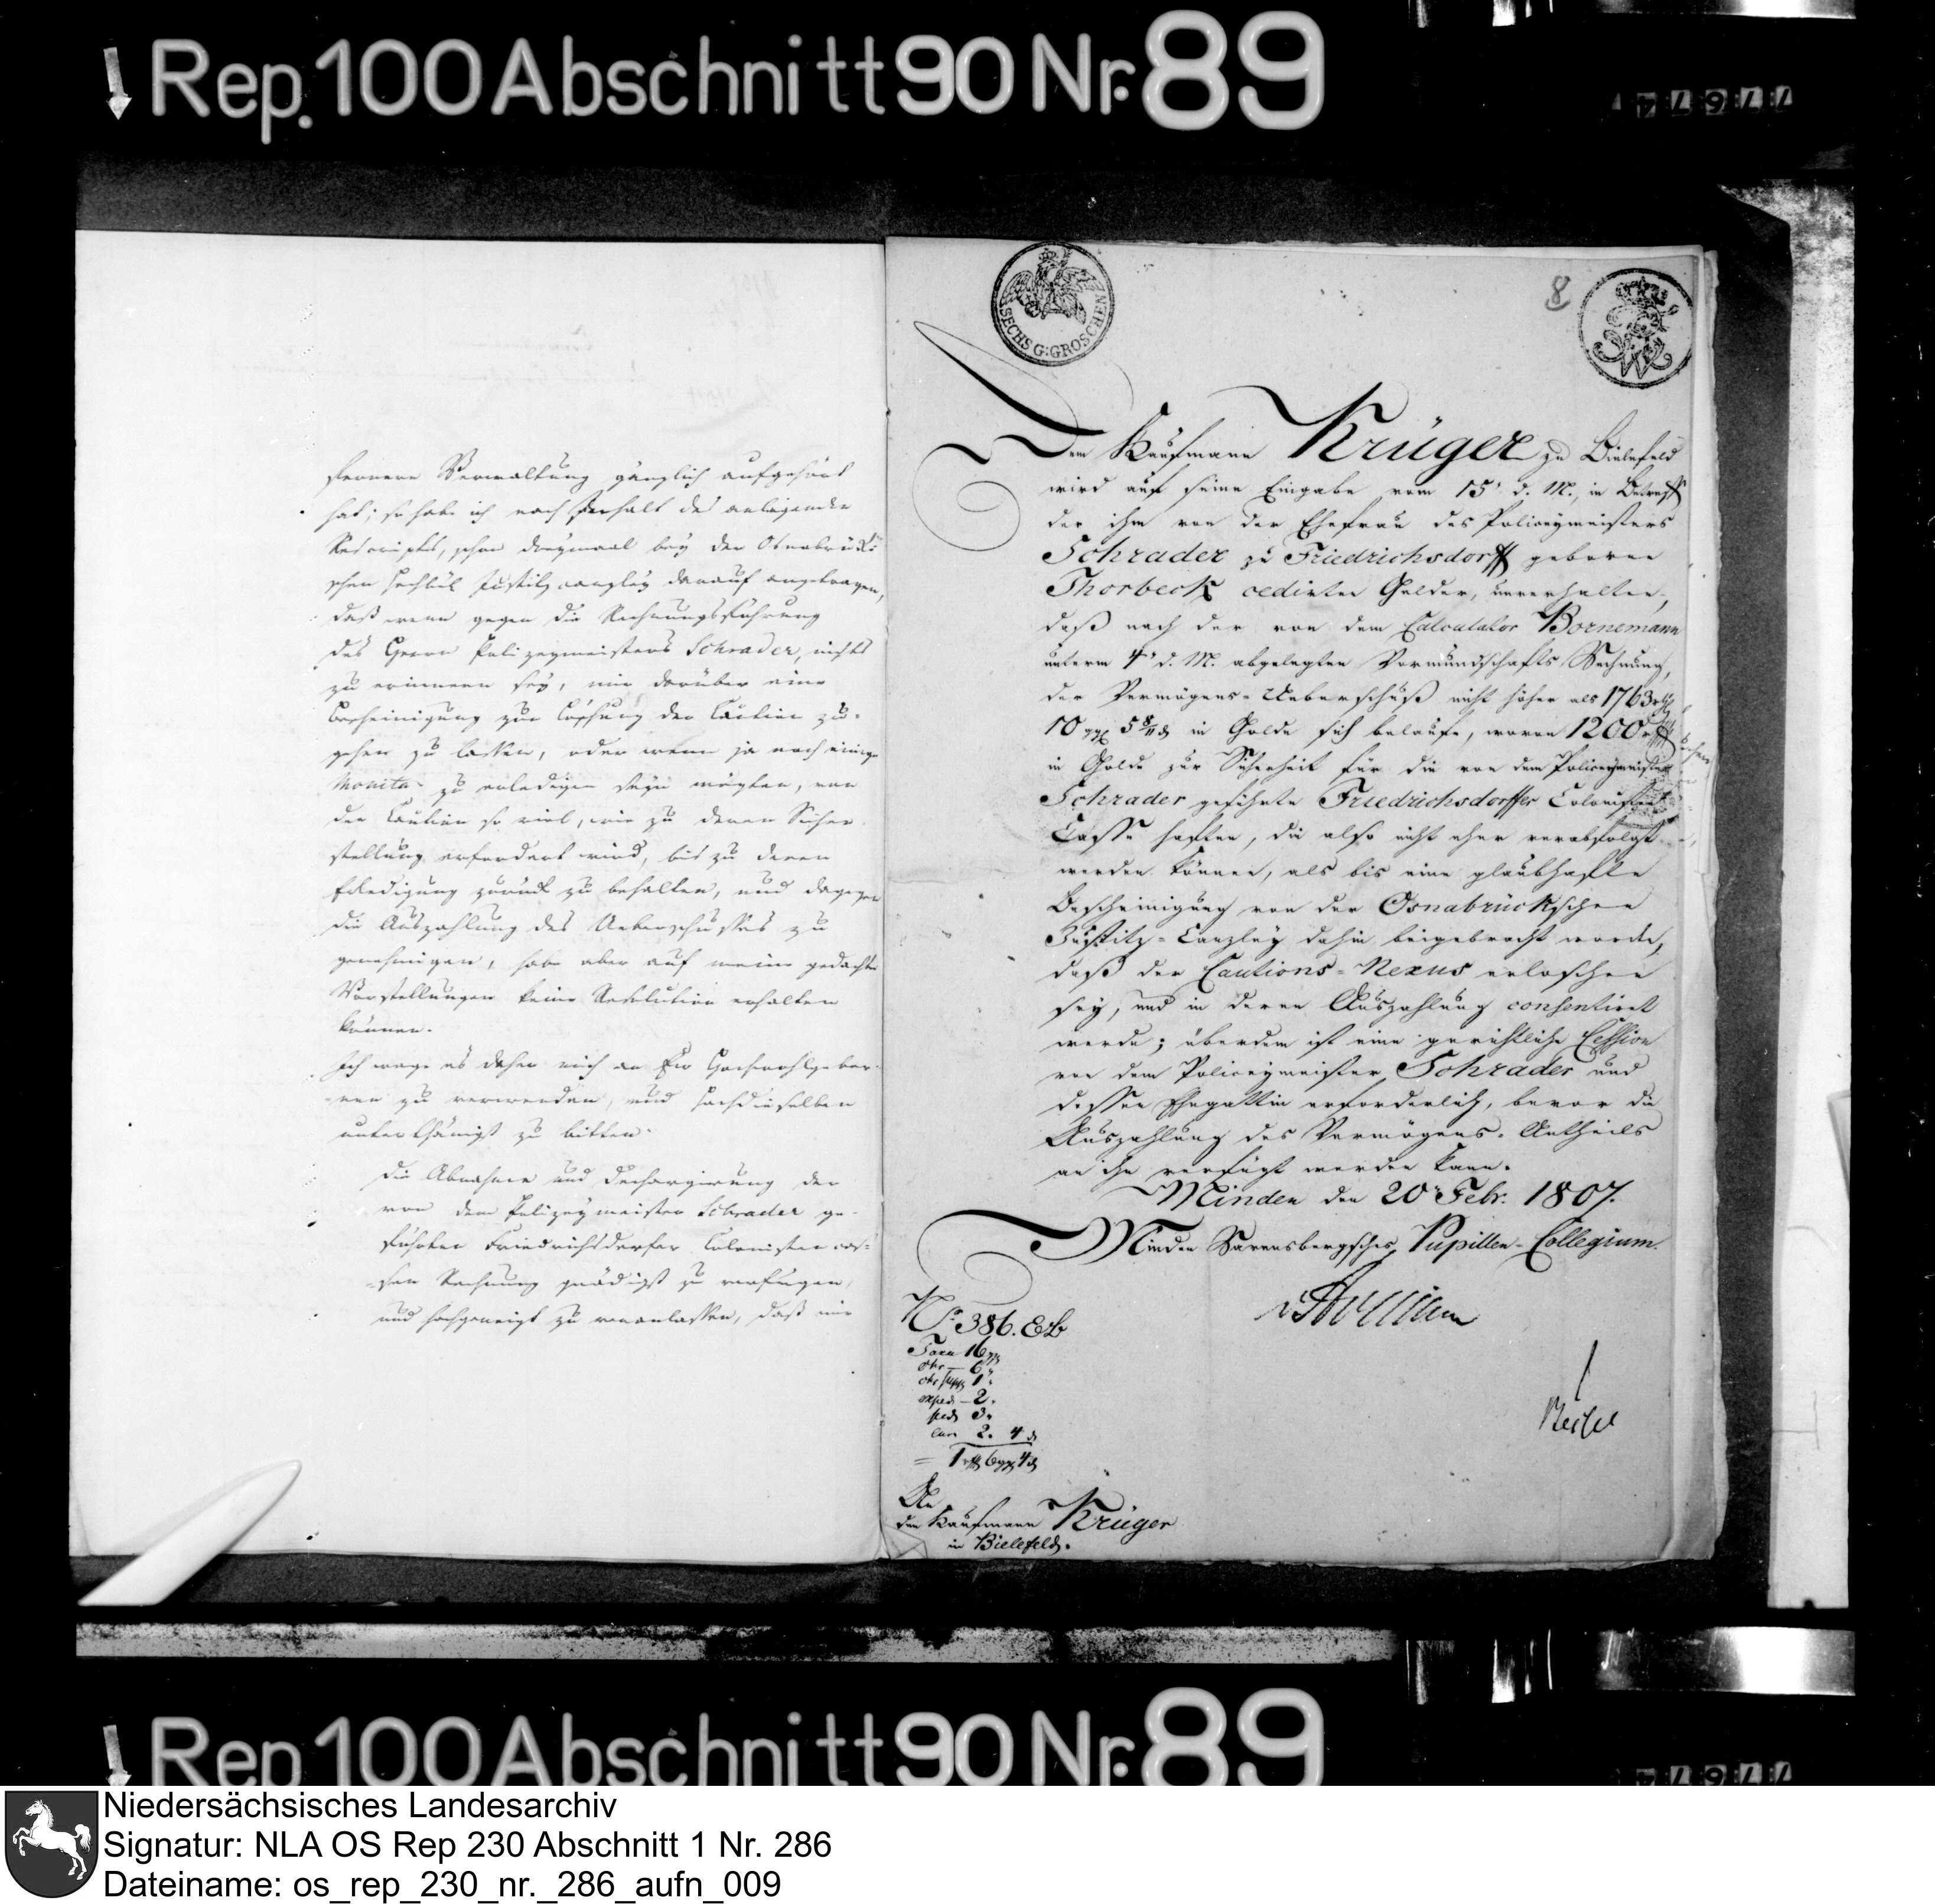 Rep. 100 Abschnitt 90 Nr. 89
77674
fernere Verwaltung gänzlich aufgehört
hat; so habe ich nach Inhalt des anliegenden
Rescripts, schon dreymaal bey der Osnabrück-
schen Justitz canzley darauf angetragen,
daß wenn gegen die Rechnungsführung
des Herrn Polizeymeisters Schrader, nichts
zu erinnern sey, mir darüber eine
Bescheinigung zur Löschung der Caution zu-
gehen zu lassen, oder wenn ja noch einige
Monita zu erledigen seyn mögten, von
der Caution so viel, wie zu deren Sicher-
stellung erfordert wird, bis zu deren
Erledigung zurück zu behalten, und dagegen
die Auszahlung des Ueberschusses zu
genehmigen, habe aber auf meine gedachte
Vorstellungen keine Resolution erhalten
können.
Ich wage es daher mich an Ew Hochwohlgebor-
nen zu verwenden, und hochdieselben
unterthänigst zu bitten
die Abnahme und Dechargirung der
von dem Polizeymeister Schrader ge-
führten Friedrichsdorfer Colonisten cas-
sen Rechnung gnädigst zu verfügen,
und hochgeneigt zu veranlassen, daß mir
SECHS G:GROSCHEN
8
Dem Kaufmann Krüger zu Bielefeld
wird auf seine Eingabe vom 15' d. M., in Betreff
der ihm von der Ehefrau des Policeymeisters
Schrader zu Friedrichsdorff geborne
Thorbeck cedirten Gelder, unverhalten,
daß nach der von dem Calculator Bornemann
unterm 4' d. M. abgelegten Vormundschafts Rechnung,
der Vermögens-Ueberschuß nicht höher als 1763 rtl
10 ggl 5 8/11 d in Golde sich belaufe, wovon 1200 rtl
in Golde zur Sicherheit für die von dem Policeymeister
Schrader geführte Friedrichsdorffer Colonisten
Casse haften, die also nicht eher verabfolgt
werden können, als bis eine glaubhafte
Bescheinigung von der Osnabrückschen
Justitz-Canzley dahin beigebracht worden,
daß der Cautions-Nexus erloschen
sey, und in deren Auszahlung consentiret
werde; überdem ist eine gerichtliche Cession
von dem Policeymeister Schrader und
dessen Ehegattin erforderlich, bevor die
Auszahlung des Vermögens-Antheils
an ihn verfügt werden kann.
Minden den 20' Febr. 1807.
Minden Ravensbergsches Pupillen-Collegium.
No 386.
Taxa 16 ggl
6
1
2.
3.
2. 4 d
= 1 rtl 6 ggl 4 d
An
den Kaufmann Krüger
in Bielefeld.
Rep 100 Abschnitt 90 Nr. 89
77674
Niedersächsisches Landesarchiv
Signatur: NLA OS Rep 230 Abschnitt 1 Nr. 286
Dateiname: os_rep_230_nr._286_aufn_009